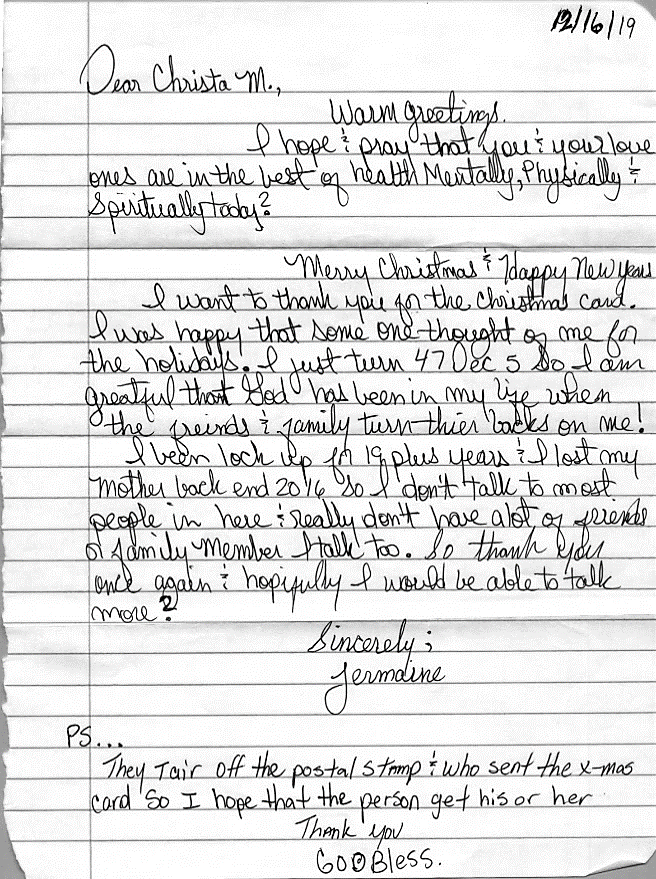 12/16/19
Dear Christa M.,
Warm greetings.
I hope & pray that you & your love
ones are in the best of health Mentally, Physically &
Spiritually today?
Merry Christmas & Happy New years
I want to thank you for the Christmas card.
I was happy that some one thought of me for
the holidays. I just turn 47 Dec 5 So I am
greatful that God has been in my life when
the freinds & family turn thier backs on me!
I been lock up for 19 plus years & I lost my
Mother back end 2016 so I don't talk to most
people in here & really don't have alot of friends
or family Member I talk too. So thank you
once again & hopifully I would be able to talk
more?
Sincerely;
Jermaine
PS...
They Tair off the postal stamp & who sent the x-mas
card So I hope that the person get his or her
Thank you
GOD Bless.